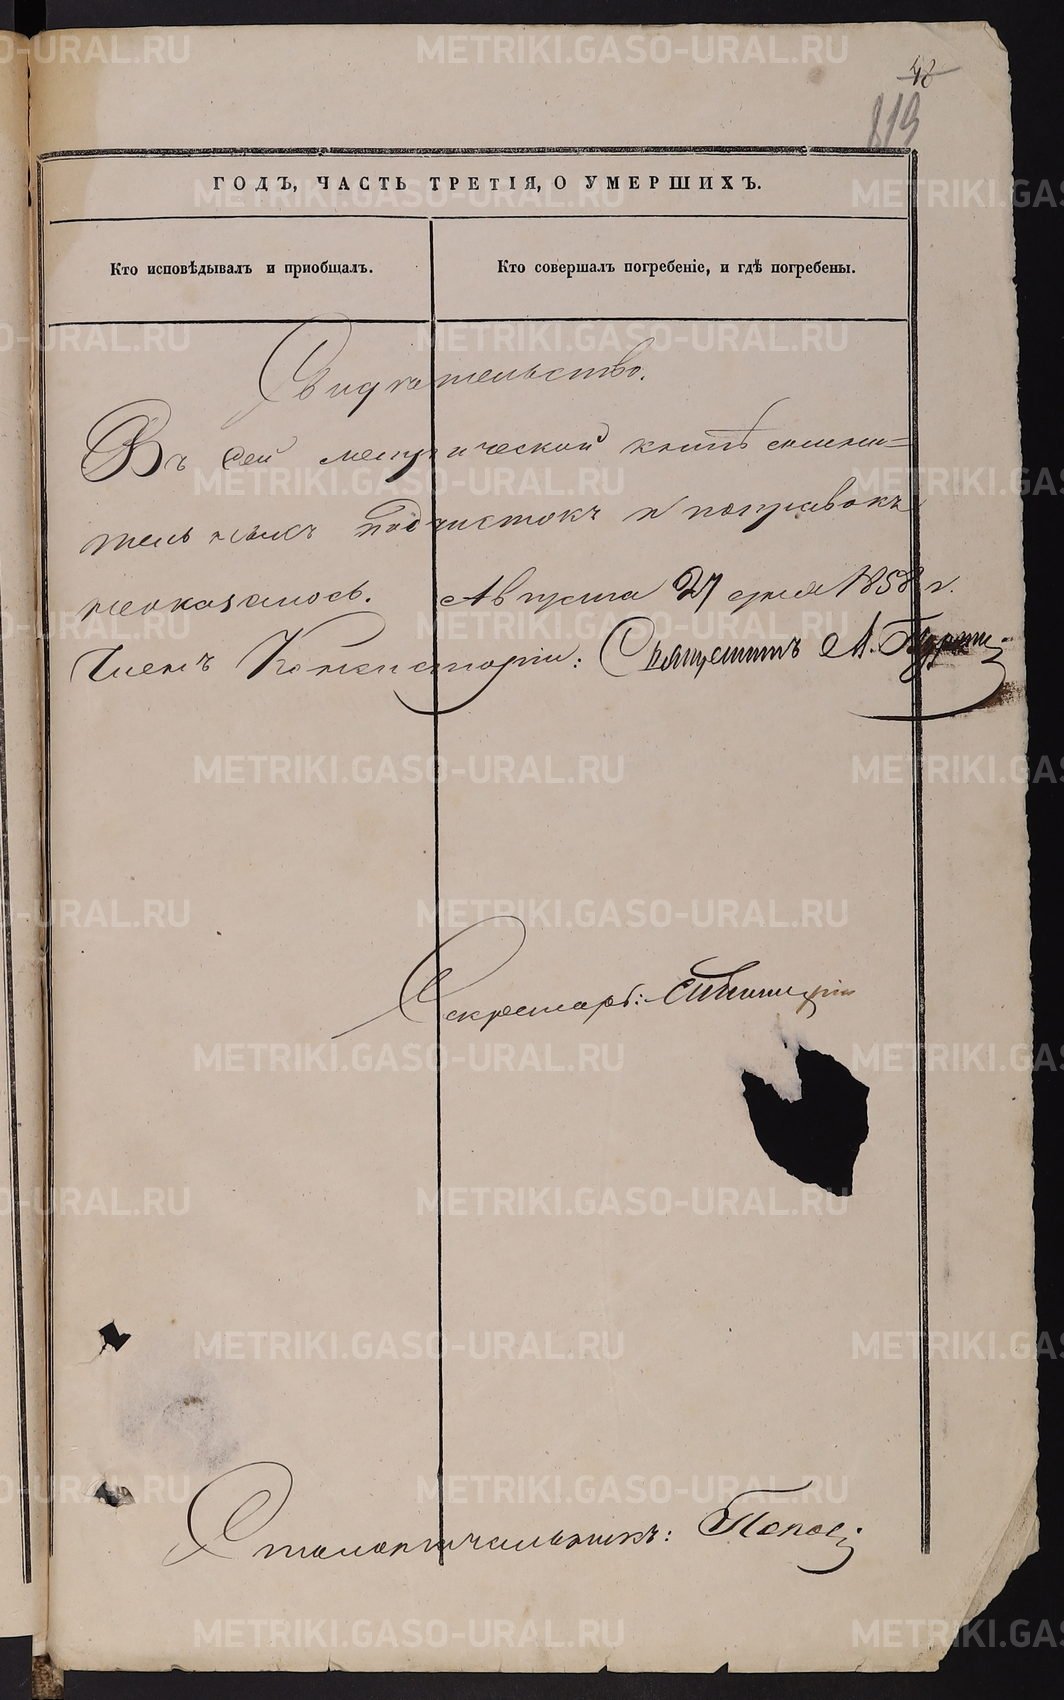 48
819
ГОДЪ, ЧАСТЬ ТРЕТІЯ, О УМЕРШИХЪ.
Кто исповѣдывалъ и пріобщалъ.
Кто совершалъ погребеніе, и гдѣ погребены.
Свидѣтельство.
Въ сей метрической книгѣ сомни=
тельныхъ подчистокъ и поправокъ
неоказалось. Августа 27 дня 1858 г.
Членъ Консисторіи: Священникъ А.
Секретарь:
Столоначальникъ: Поповъ
METRIKI.GASO-URAL.RU